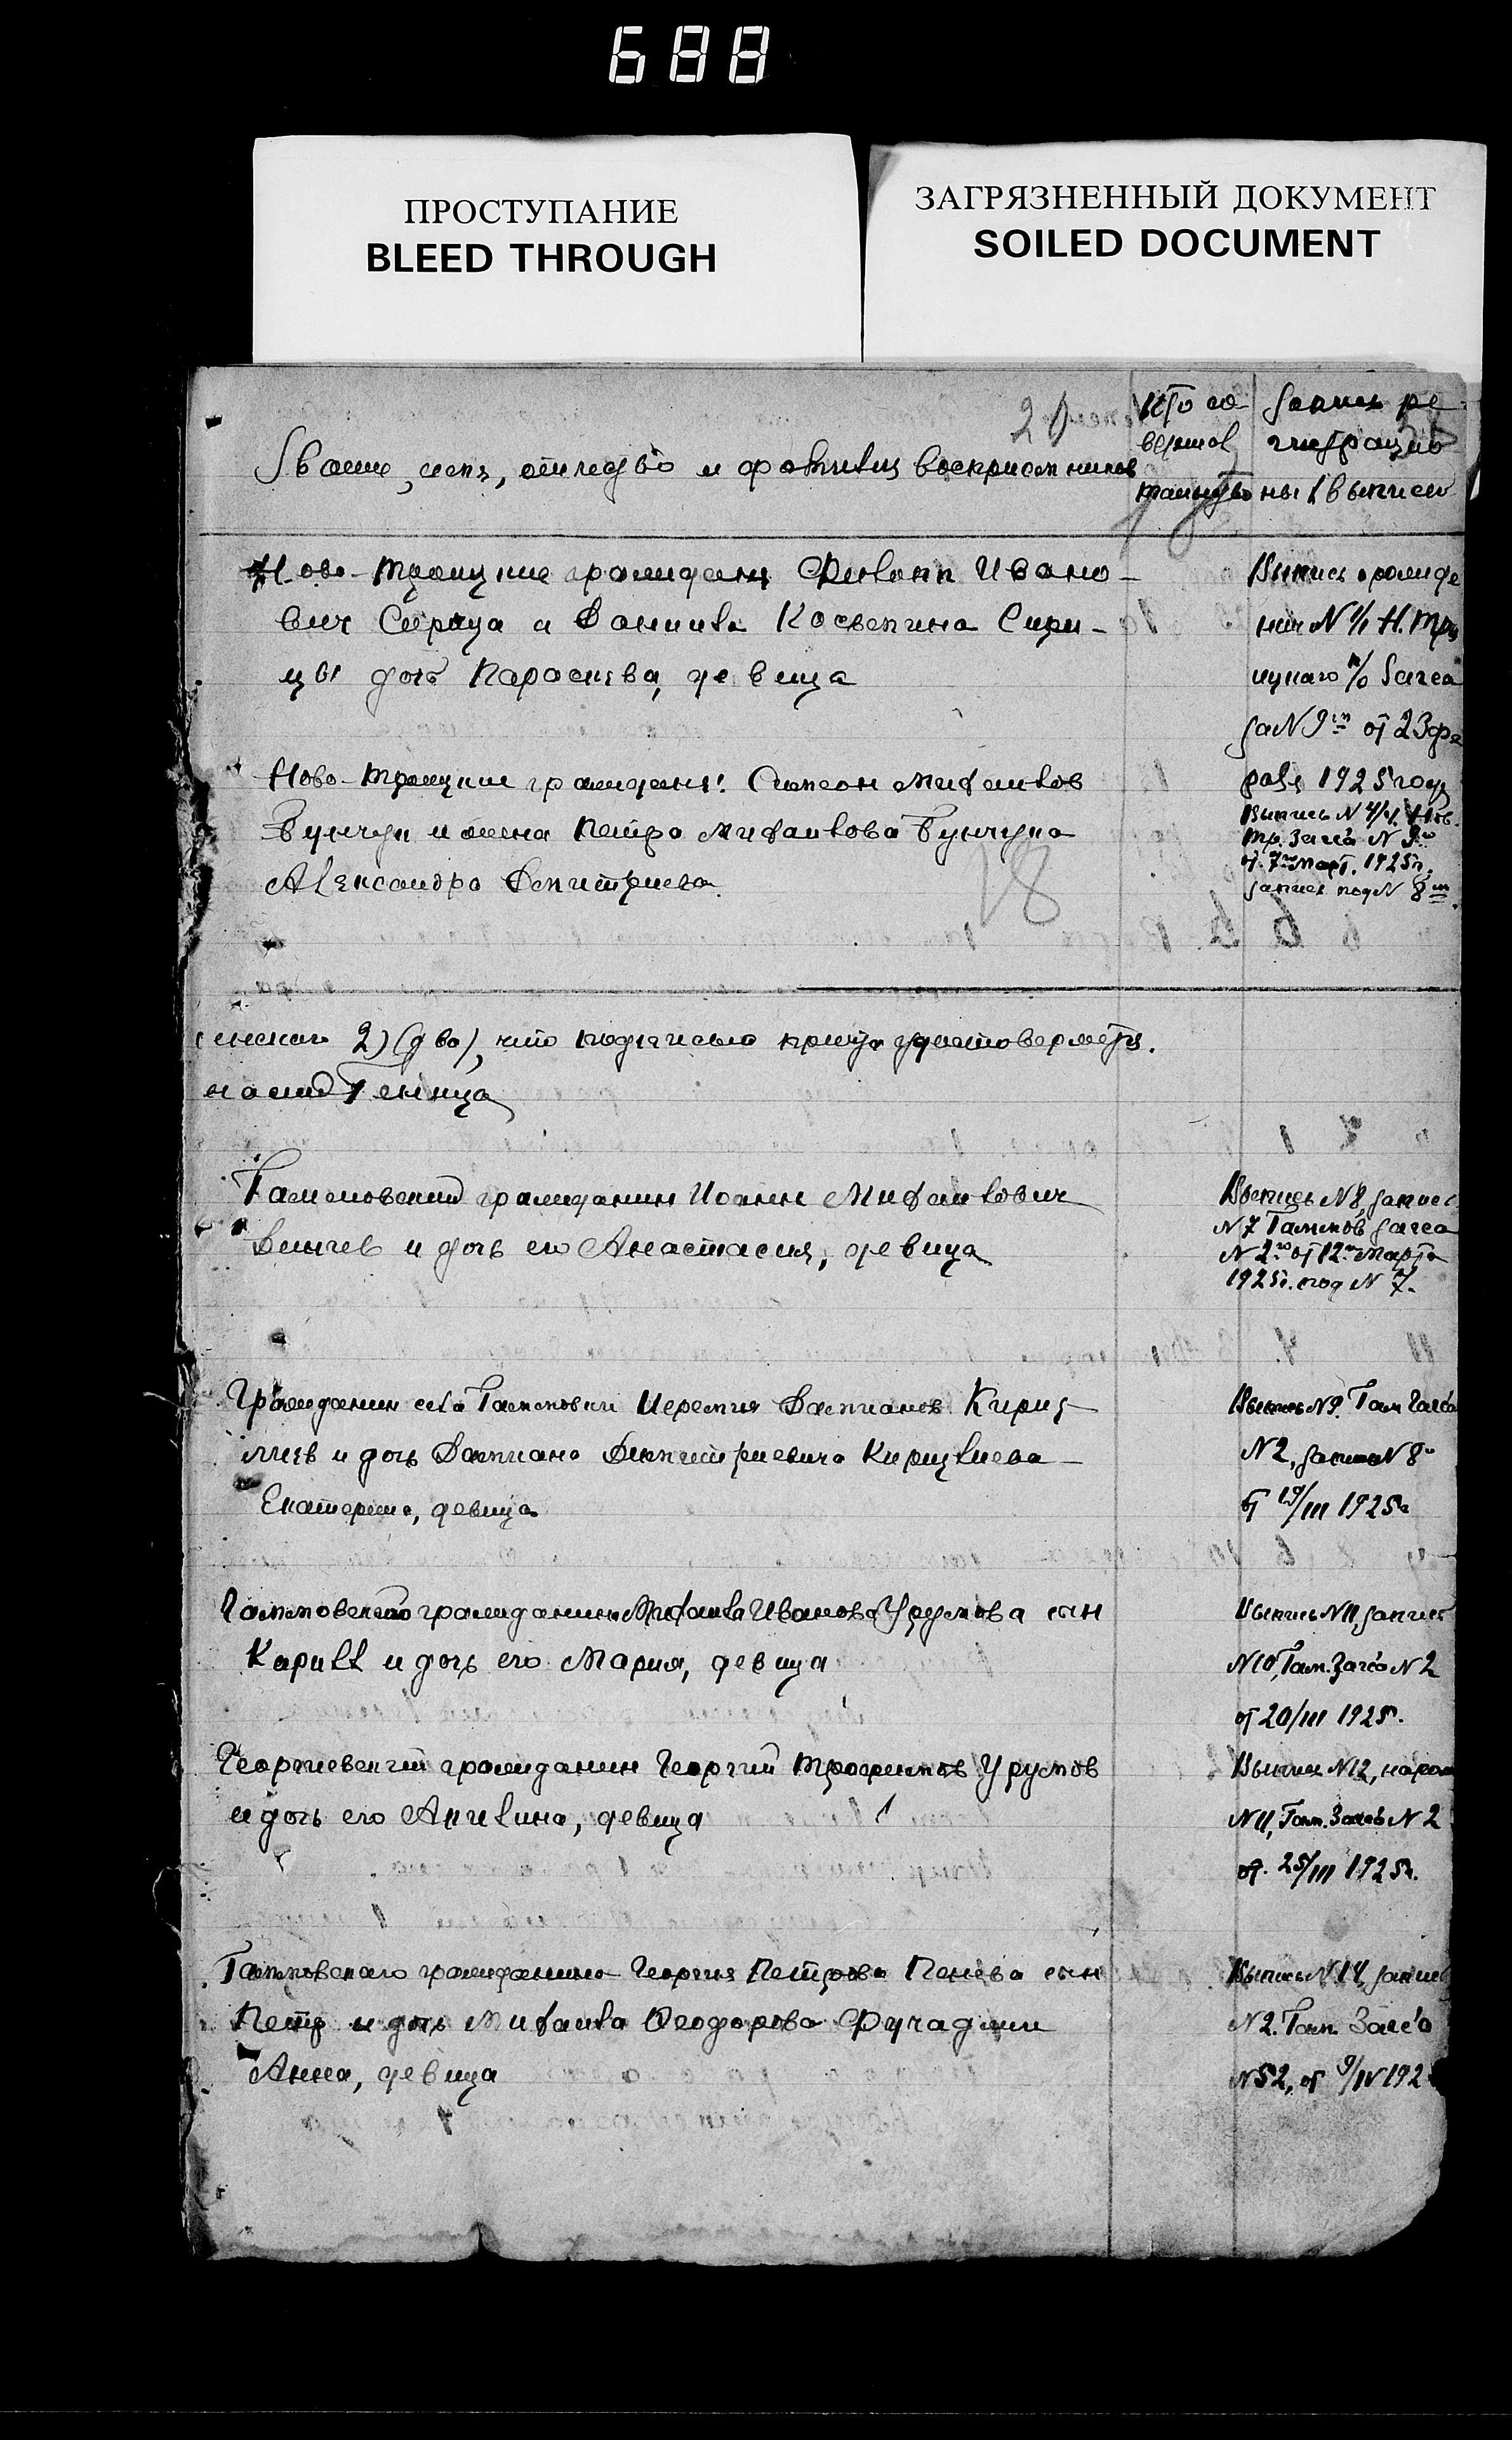 688
ПРОСТУПАНИЕ
BLEED THROUGH
ЗАГРЯЗНЕННЫЙ ДОКУМЕНТ
SOILED DOCUMENT
20
Званіе, имя, отчество и фамилия восприемников
Кто со
вершал
таинство
Запись ре
гистрацио
ны выписей
Ново-Троицкие граждани Филипп Ивано-
вич Сирица и Даниила Косьмина Сири-
цы дочь Параскева, девица
Выпись о рожде
нии N 1/1 Н. Тро
ицкаго Загса
за N 9 от 23 фе
раля 1925 год
Ново-Троицкие граждани: Симеон Михаилов
Бунчук и жена Петра Михаилова Бунчука
Александра Димитриева
Выпись N 4/4 Нов.
Тр. Загса N 9
от 7 март. 1925 г.
запись под N 8
18
женскаго 2) (два), что подписью причта удостоверяется.
Тамановский гражданин Иоанн Михаилович
Димчев и дочь его Анастасия, девица
Выпись N 8, запись
N 7 Загса
N 2 от 12 марта
1925 г. под N 7.
Гражданин села Иеремия Дамианов Кириц-
лиев и дочь Дамиана Димитриевича Кирицлиева
Екатерина, девица
Выпись N 9. Там Загса
N 2, запись N 8
от 19/III 1925 г
гражданина Михаила Иванова Урумова сын
Кирилл и дочь его Мария, девица
Выпись N 11, запись
N 10, Там. Загса N 2
от 20/III 1925 г.
Георгиевский гражданин Георгий Трофимов Урумов
и дочь его Ангелина, девица
Выпись N 12,
N 11, Там. Загса N 2
от. 25/III 1925 г.
гражданина Георгия Петрова Пенева сын
Петр и дочь Михаила Феодорова Фучаджи
Анна, девица
Выпись N 14, запись
N 2. Там. Загса
N 52, от 9/IV 192